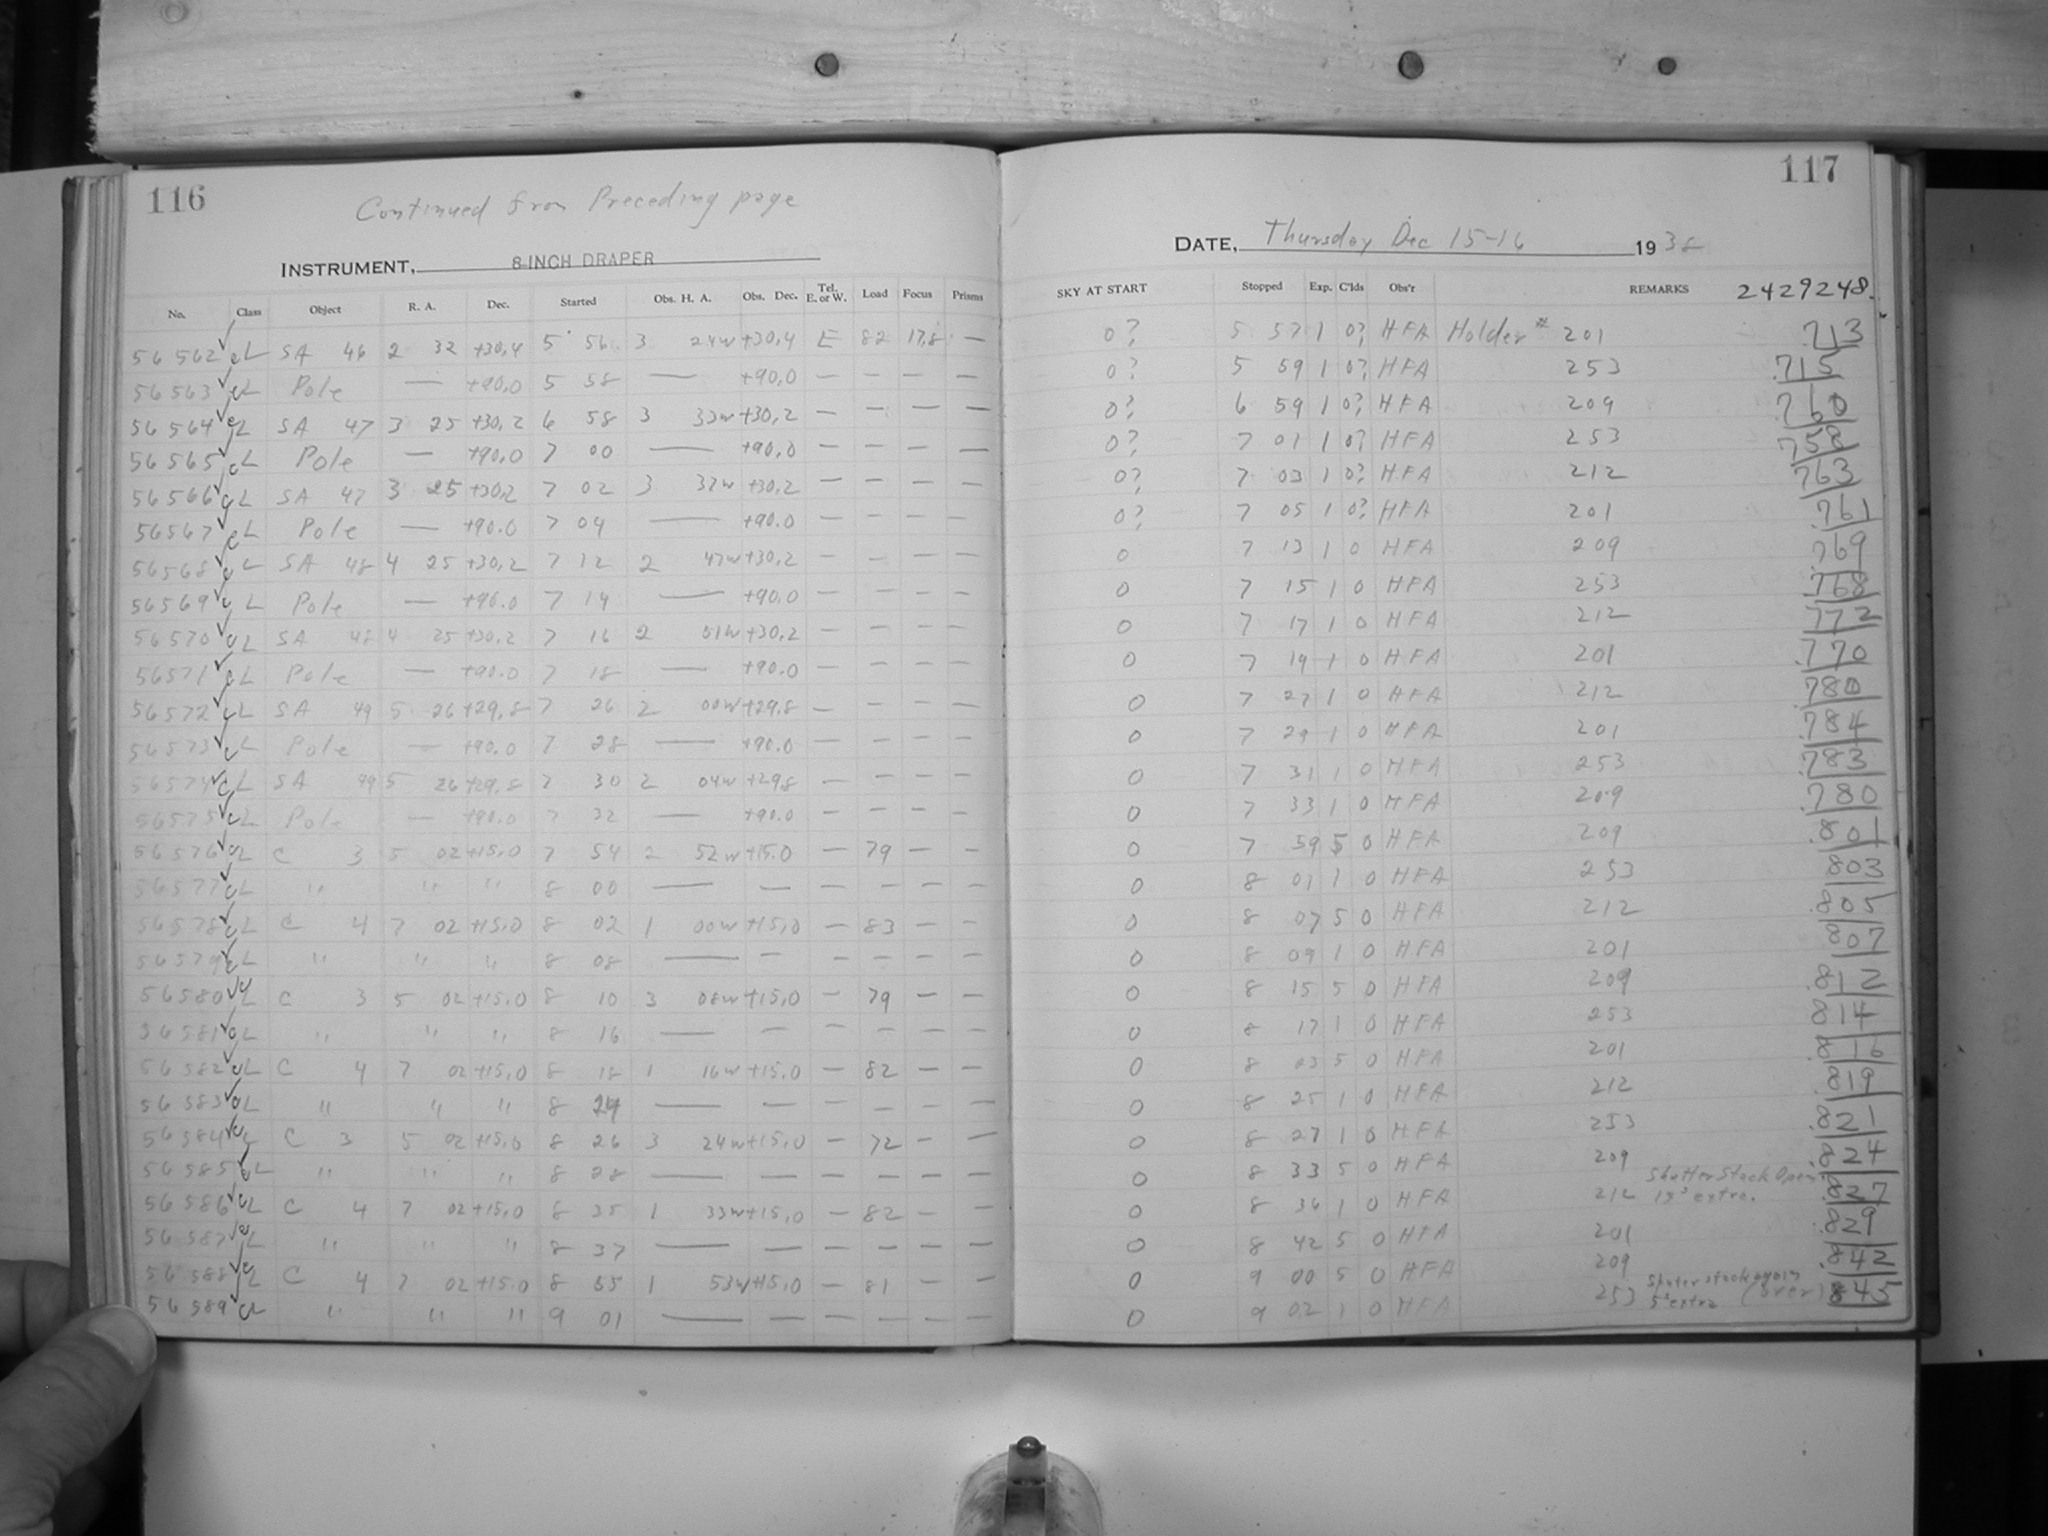 116
Continued from Preceding page
INSTRUMENT, 8-INCH DRAPER
No. Class Object R. A. Dec. Started Obs. H. A. Obs. Dec. Tel. E. or W. Load Focus Prisms
56562 cL SA 46 2 32 +30,4 5 56 3 24w +30,4 E 82 17,8 —
56563 cL Pole — +90,0 5 58 — +90,0 — — — —
56564 cL SA 47 3 25 +30,2 6 58 3 33w +30,2 — — — —
56565 cL Pole — +90,0 7 00 — +90,0 — — — —
56566 cL SA 47 3 25 +30,2 7 02 3 37w +30,2 — — — —
56567 cL Pole — +90.0 7 04 — +90.0 — — — —
56568 cL SA 48 4 25 +30,2 7 12 2 47w +30,2 — — — —
56569 cL Pole — +90.0 7 14 — +90,0 — — — —
56570 cL SA 48 4 25 +30,2 7 16 2 51w +30,2 — — — —
56571 cL Pole — +90.0 7 18 — +90.0 — — — —
56572 cL SA 49 5 26 +29,8 7 26 2 00w +29.8 — — — —
56573 cL Pole — +90.0 7 28 — +90.0 — — — —
56574 cL SA 49 5 26 +29.8 7 30 2 04w +29,8 — — — —
56575 cL Pole — +90.0 7 32 — +90.0 — — — —
56576 cL C 3 5 02 +15.0 7 54 2 52w +15.0 — 79 — —
56577 cL " " " 8 00 — — — — — —
56578 cL C 4 7 02 +15.0 8 02 1 00w +15,0 — 83 — —
56579 cL " " " 8 08 — — — — — —
56580 cL C 3 5 02 +15,0 8 10 3 08w +15,0 — 79 — —
56581 cL " " " 8 16 — — — — — —
56582 cL C 4 7 02 +15,0 8 18 1 16w +15.0 — 82 — —
56583 cL " " " 8 24 — — — — — —
56584 cL C 3 5 02 +15,0 8 26 3 24w +15,0 — 72 — —
56585 cL " " " 8 28 — — — — — —
56586 cL C 4 7 02 +15,0 8 35 1 33w +15,0 — 82 — —
56587 cL " " " 8 37 — — — — — —
56588 cL C 4 7 02 +15.0 8 55 1 53w +15,0 — 81 — —
56589 cL " " " 9 01 — — — — — —
117
DATE, Thursday Dec 15-16 1938
SKY AT START Stopped Exp. C'lds Obs'r REMARKS 2429248.
0? 5 57 1 0? HFA Holder # 201 .713
0? 5 59 1 0? HFA 253 .715
0? 6 59 1 0? HFA 209 .760
0? 7 01 1 0? HFA 253 .758
0? 7 03 1 0? HFA 212 .763
0? 7 05 1 0? HFA 201 .761
0 7 13 1 0 HFA 209 .769
0 7 15 1 0 HFA 253 .768
0 7 17 1 0 HFA 212 .772
0 7 19 1 0 HFA 201 .770
0 7 27 1 0 HFA 212 .780
0 7 29 1 0 HFA 201 .784
0 7 31 1 0 HFA 253 .783
0 7 33 1 0 HFA 209 .780
0 7 59 5 0 HFA 209 .801
0 8 01 1 0 HFA 253 .803
0 8 07 5 0 HFA 212 .805
0 8 09 1 0 HFA 201 .807
0 8 15 5 0 HFA 209 .812
0 8 17 1 0 HFA 253 .814
0 8 23 5 0 HFA 201 .816
0 8 25 1 0 HFA 212 .819
0 8 27 1 0 HFA 253 .821
0 8 33 5 0 HFA 209 .824
0 8 36 1 0 HFA 212 Shutter Stuck Open extra. .827
0 8 42 5 0 HFA 201 .829
0 9 00 5 0 HFA 209 .842
0 9 02 1 0 HFA 253 Shuter stuck again 5s extra (over) .845